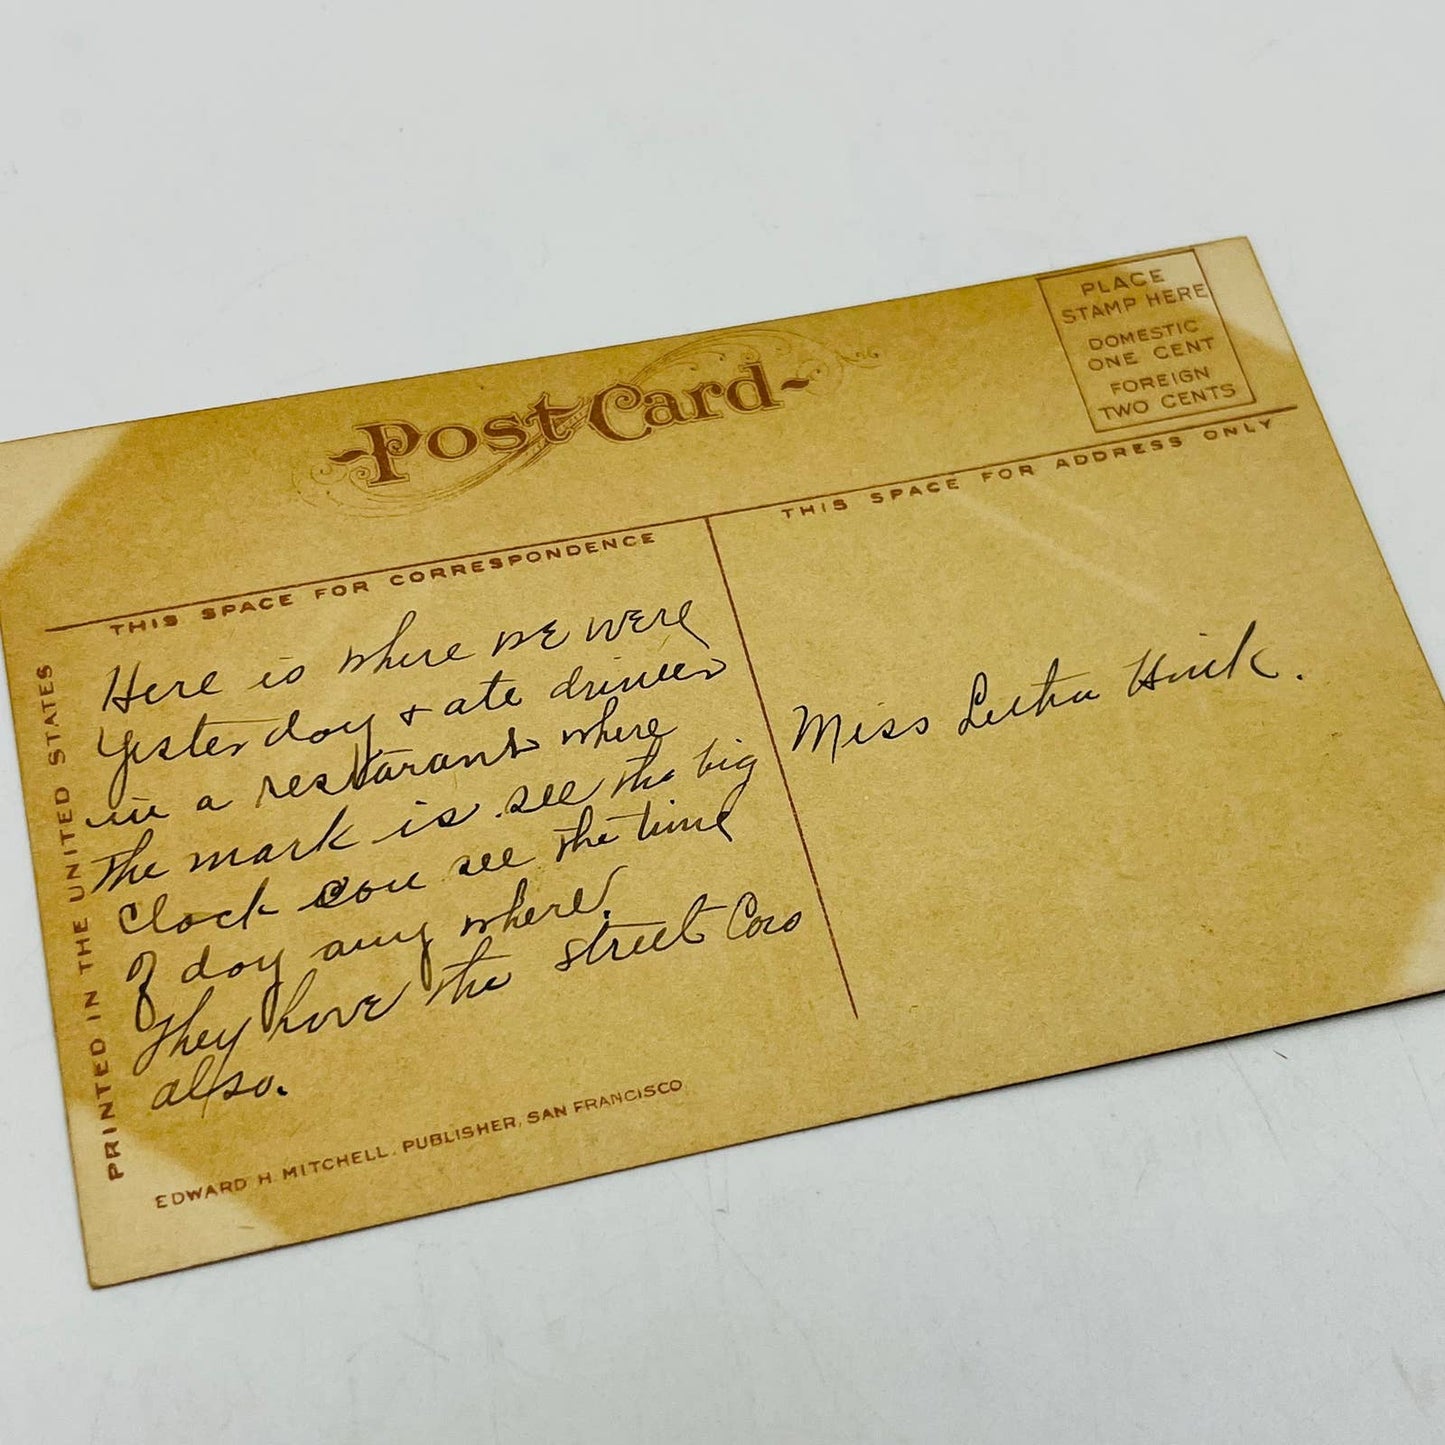 Post Card
PLACE
STAMP HERE
DOMESTIC
ONE CENT
FOREIGN
TWO CENTS
THIS SPACE FOR CORRESPONDENCE
THIS SPACE FOR ADDRESS ONLY
PRINTED IN THE UNITED STATES
Here is where we were
yesterday & ate dinner
in a restarant where
the mark is. see the big
Clock cou see the time
of day any where.
They have the street Cars
also.
Miss
EDWARD H. MITCHELL, PUBLISHER, SAN FRANCISCO